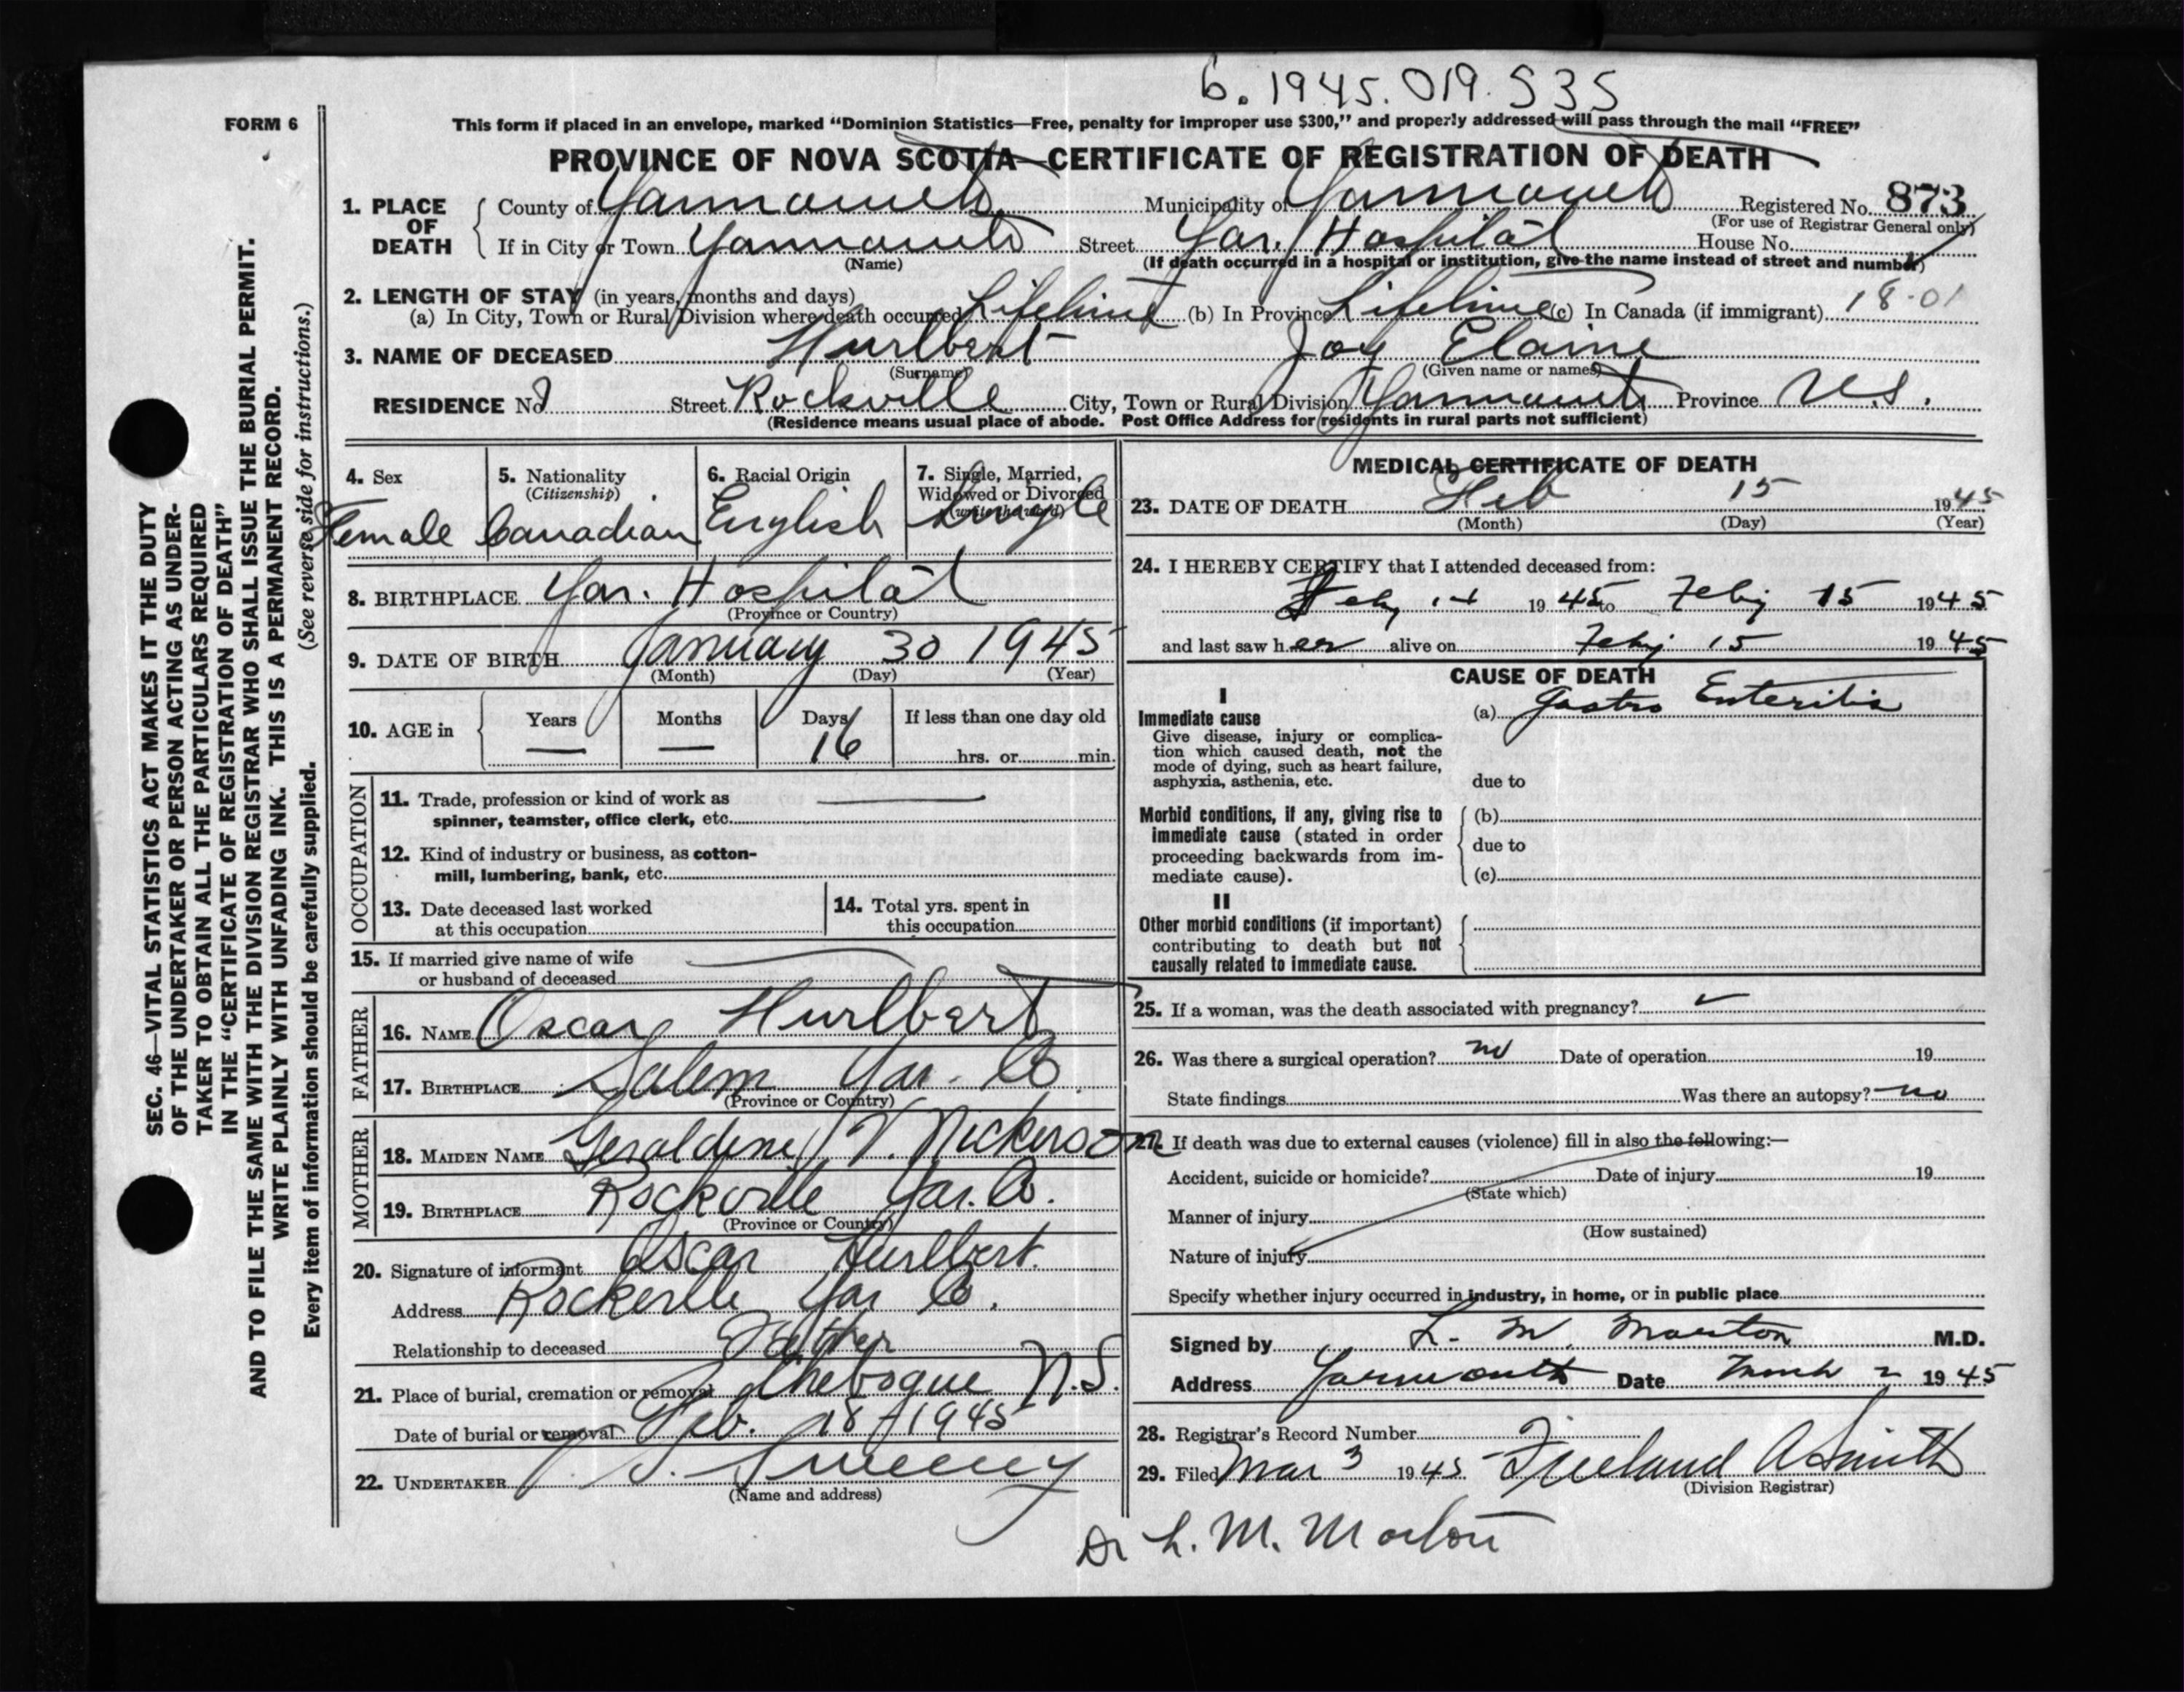 6. 1945. 019. 535
FORM 6
This form if placed in an envelope, marked “Dominion Statistics—Free, penalty for improper use $300,” and properly addressed will pass through the mail “FREE”
PROVINCE OF NOVA SCOTIA—CERTIFICATE OF REGISTRATION OF DEATH
1. PLACE OF DEATH
County of Yarmouth Municipality of Yarmouth Registered No. 873
(For use of Registrar General only)
If in City or Town Yarmouth Street Yar. Hospital House No.
(Name) (If death occurred in a hospital or institution, give the name instead of street and number)
2. LENGTH OF STAY (in years, months and days)
(a) In City, Town or Rural Division where death occurred Lifetime (b) In Province Lifetime (c) In Canada (if immigrant) 18-01
3. NAME OF DECEASED Hurlbert Joy Elaine
(Surname) (Given name or names)
RESIDENCE No Street Rockville City, Town or Rural Division Yarmouth Province N.S.
(Residence means usual place of abode. Post Office Address for residents in rural parts not sufficient)
4. Sex
Female
5. Nationality
(Citizenship)
Canadian
6. Racial Origin
English
7. Single, Married,
Widowed or Divorced
(write the word)
Single
8. BIRTHPLACE Yar. Hospital
(Province or Country)
9. DATE OF BIRTH January 30 1945
(Month) (Day) (Year)
10. AGE in Years — Months — Days 16 If less than one day old
hrs. or min.
OCCUPATION
11. Trade, profession or kind of work as
spinner, teamster, office clerk, etc.
12. Kind of industry or business, as cotton-
mill, lumbering, bank, etc.
13. Date deceased last worked
at this occupation
14. Total yrs. spent in
this occupation
15. If married give name of wife
or husband of deceased
FATHER
16. NAME Oscar Hurlbert
17. BIRTHPLACE Salem Yar. Co.
(Province or Country)
MOTHER
18. MAIDEN NAME Geraldine V. Nickerson
19. BIRTHPLACE Rockville Yar. Co.
(Province or Country)
20. Signature of informant Oscar Hurlbert.
Address Rockville Yar Co.
Relationship to deceased Father
21. Place of burial, cremation or removal Chebogue N.S.
Date of burial or removal Feb. 18 1945
22. UNDERTAKER V. S. Sweeny
(Name and address)
MEDICAL CERTIFICATE OF DEATH
23. DATE OF DEATH Feb 15 1945
(Month) (Day) (Year)
24. I HEREBY CERTIFY that I attended deceased from:
Feby 14 1945 to Feby 15 1945
and last saw her alive on Feby 15 1945
CAUSE OF DEATH
I
Immediate cause
Give disease, injury or complica-
tion which caused death, not the
mode of dying, such as heart failure,
asphyxia, asthenia, etc.
(a) Gastro Enteritis
due to
Morbid conditions, if any, giving rise to
immediate cause (stated in order
proceeding backwards from im-
mediate cause).
(b)
due to
(c)
II
Other morbid conditions (if important)
contributing to death but not
causally related to immediate cause.
25. If a woman, was the death associated with pregnancy?
26. Was there a surgical operation? no Date of operation 19
State findings Was there an autopsy? no
27. If death was due to external causes (violence) fill in also the following:—
Accident, suicide or homicide? Date of injury 19
(State which)
Manner of injury
(How sustained)
Nature of injury
Specify whether injury occurred in industry, in home, or in public place
Signed by L. M. Morton M.D.
Address Yarmouth Date March 2 1945
28. Registrar's Record Number
29. Filed Mar 3 1945 Freeland A Smith
(Division Registrar)
Dr L. M. Morton
SEC. 46—VITAL STATISTICS ACT MAKES IT THE DUTY
OF THE UNDERTAKER OR PERSON ACTING AS UNDER-
TAKER TO OBTAIN ALL THE PARTICULARS REQUIRED
IN THE “CERTIFICATE OF REGISTRATION OF DEATH”
AND TO FILE THE SAME WITH THE DIVISION REGISTRAR WHO SHALL ISSUE THE BURIAL PERMIT.
WRITE PLAINLY WITH UNFADING INK. THIS IS A PERMANENT RECORD.
Every item of information should be carefully supplied. (See reverse side for instructions.)